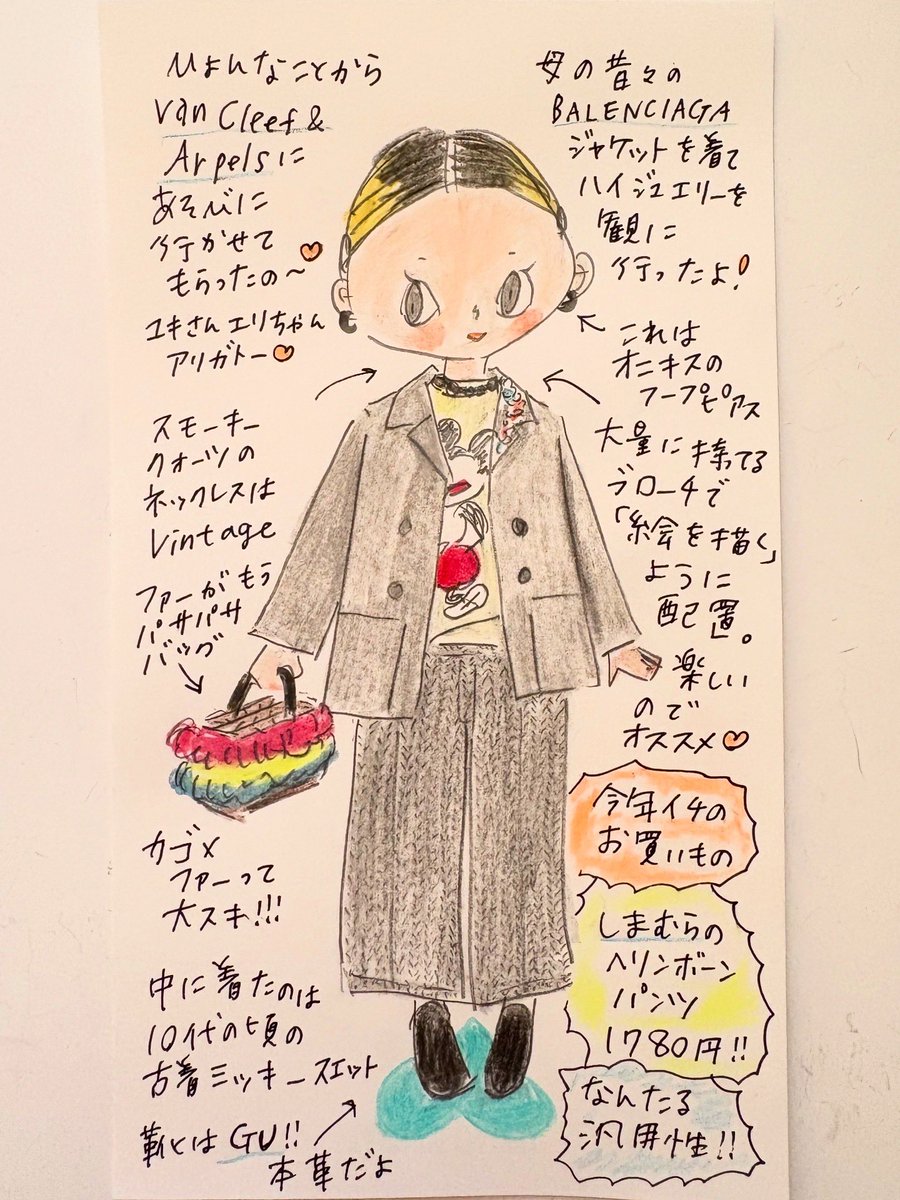 ひょんなことから
Van Cleef &
Arpelsに
あそびに
行かせて
もらったの〜
ユキさんエリちゃん
アリガトー
母の昔々の
BALENCIAGA
ジャケットを着て
ハイジュエリーを
観に
行ったよ!
これは
オニキスの
フープピアス
スモーキー
クォーツの
ネックレスは
Vintage
大量に持ってる
ブローチで
「絵を描く」
ように
配置。
楽しい
ので
オススメ
ファーがもう
パサパサ
バッグ
カゴ×
ファーって
大スキ!!!
今年イチの
お買いもの
しまむらの
ヘリンボーン
パンツ
1780円!!
なんたる
汎用性!!
中に着たのは
10代の頃の
古着ミッキースエット
靴はGU!!
本革だよ